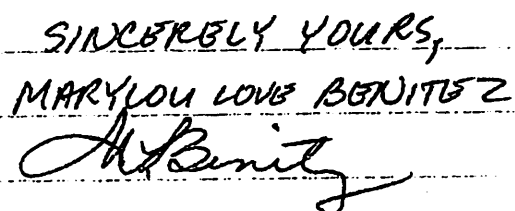 SINCERELY YOURS,
MARYLOU LOVE BENITEZ
ML Benitz